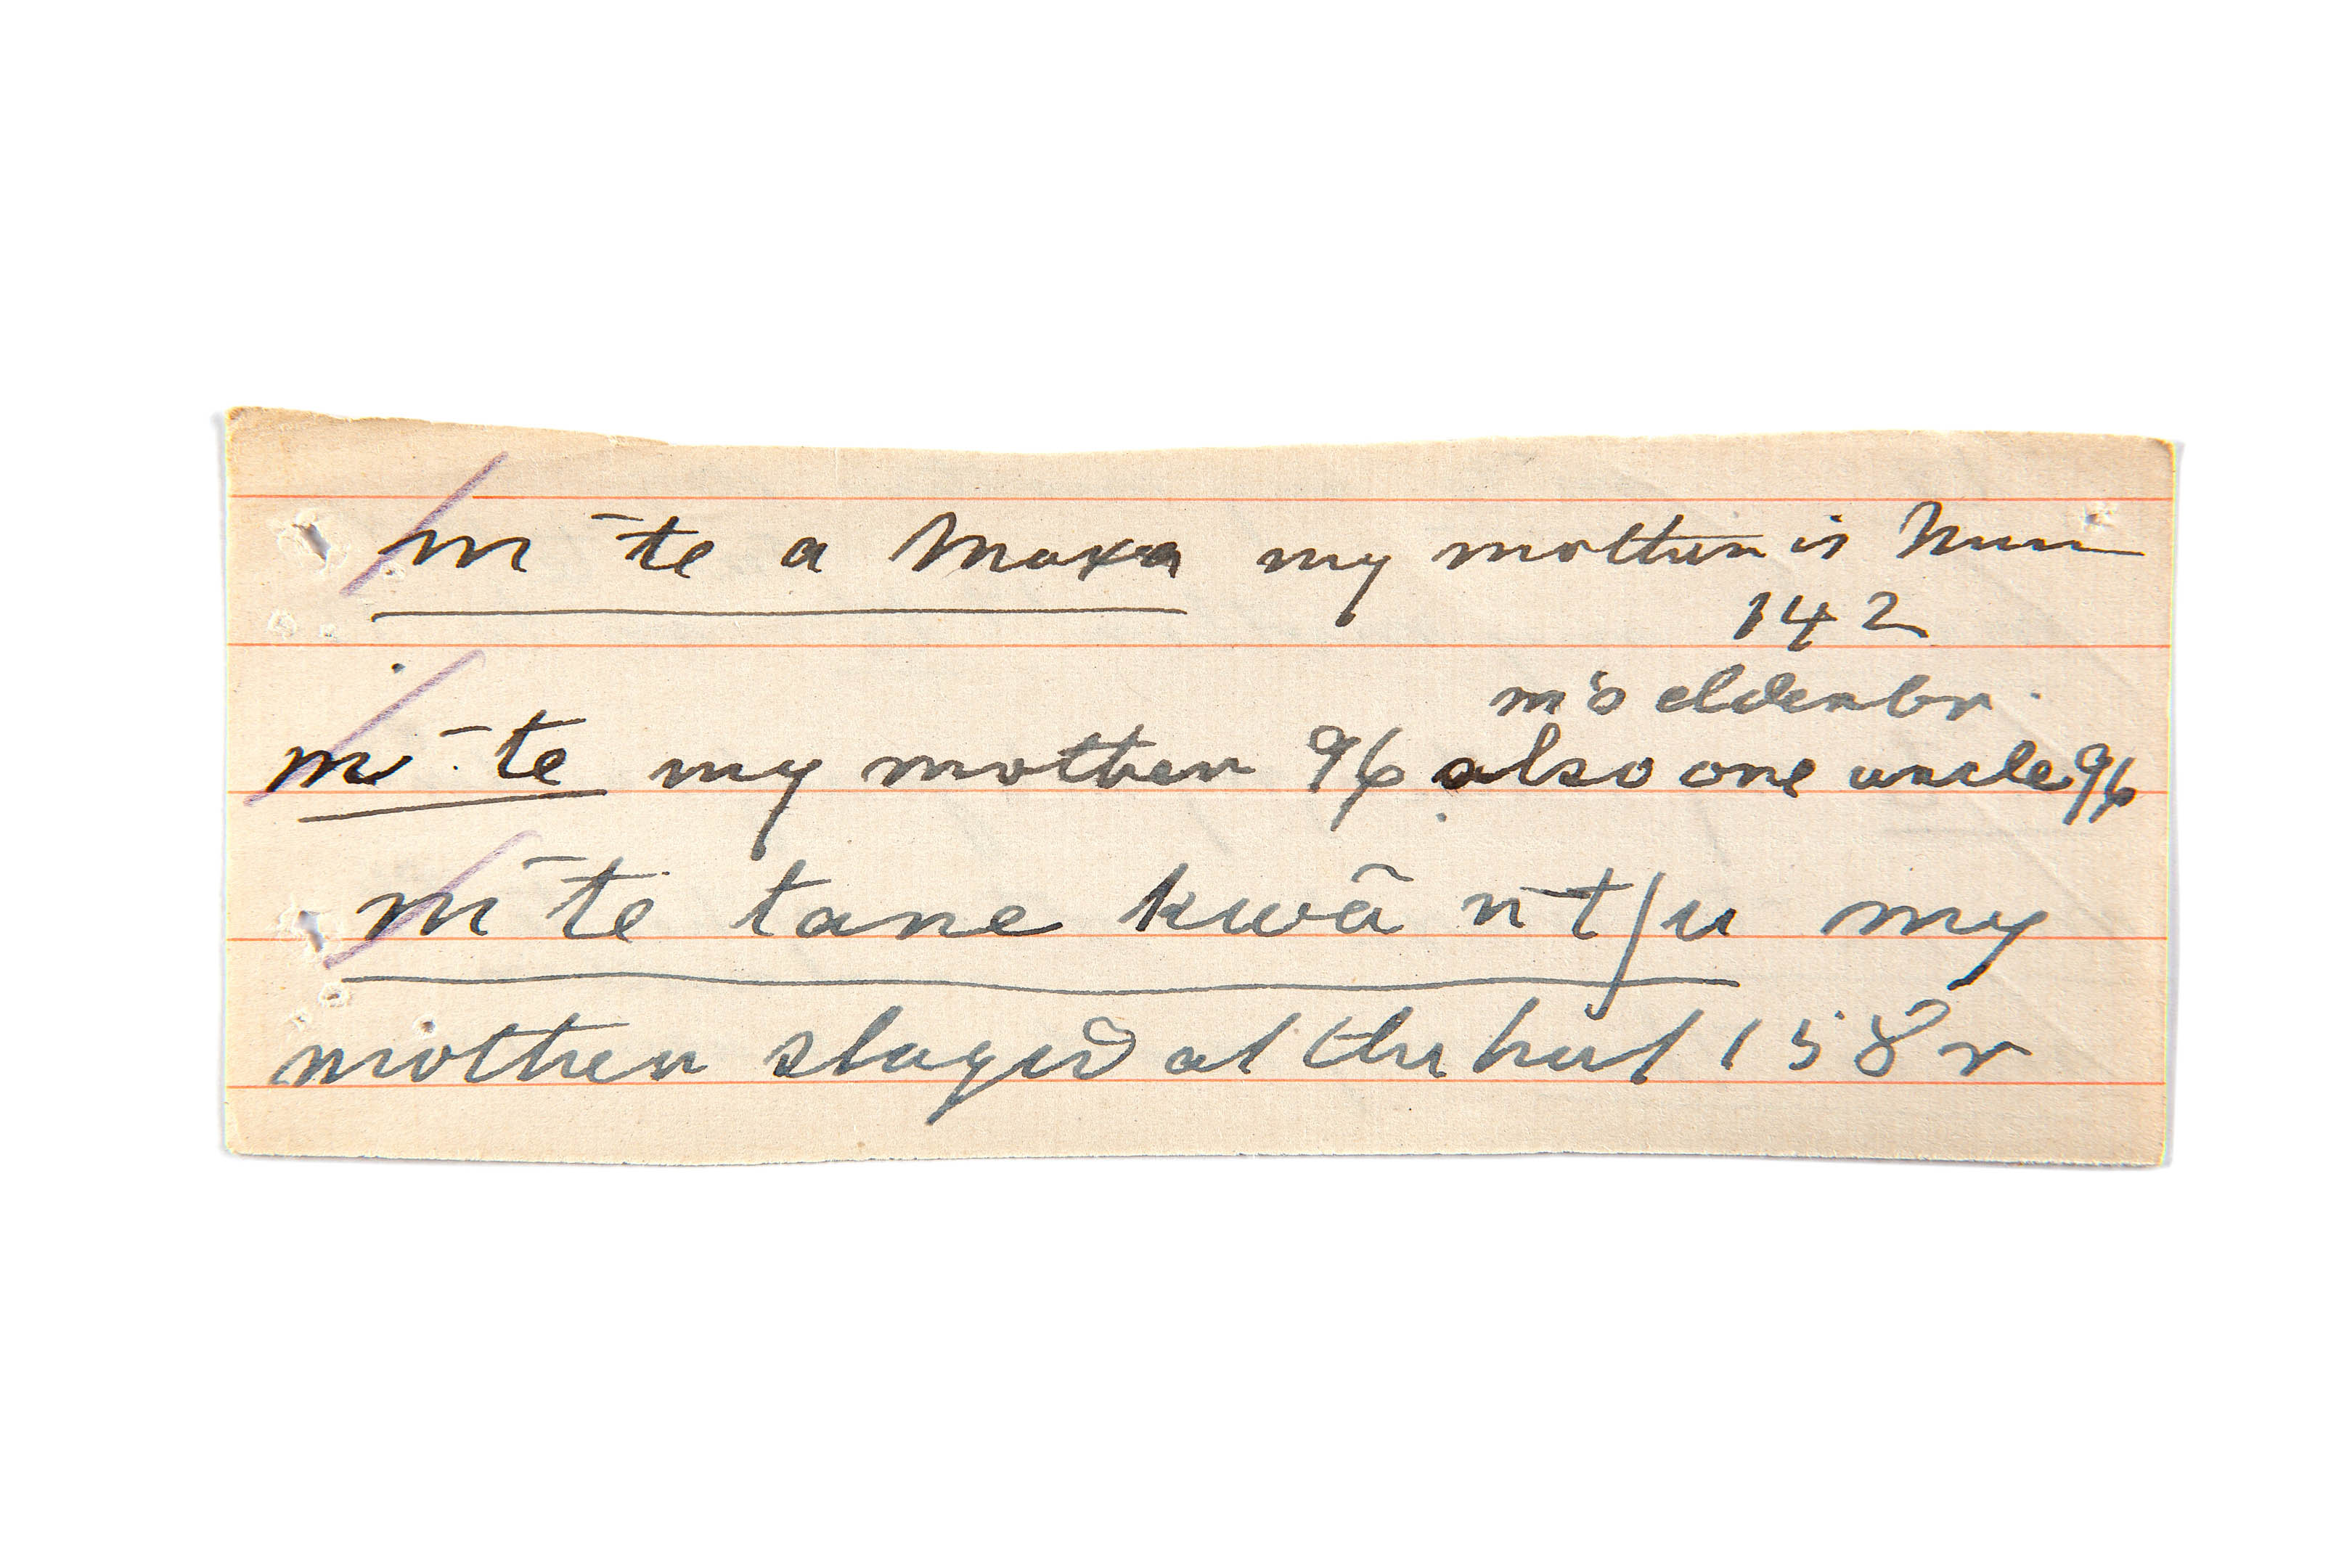 m ̄te a maxa my mother is
142
m's elder br.
mi ̄te my mother 96 also one uncle 96
mi ̄te tane kwã n ̄tʃu my
mother stayed at the hut 158 r